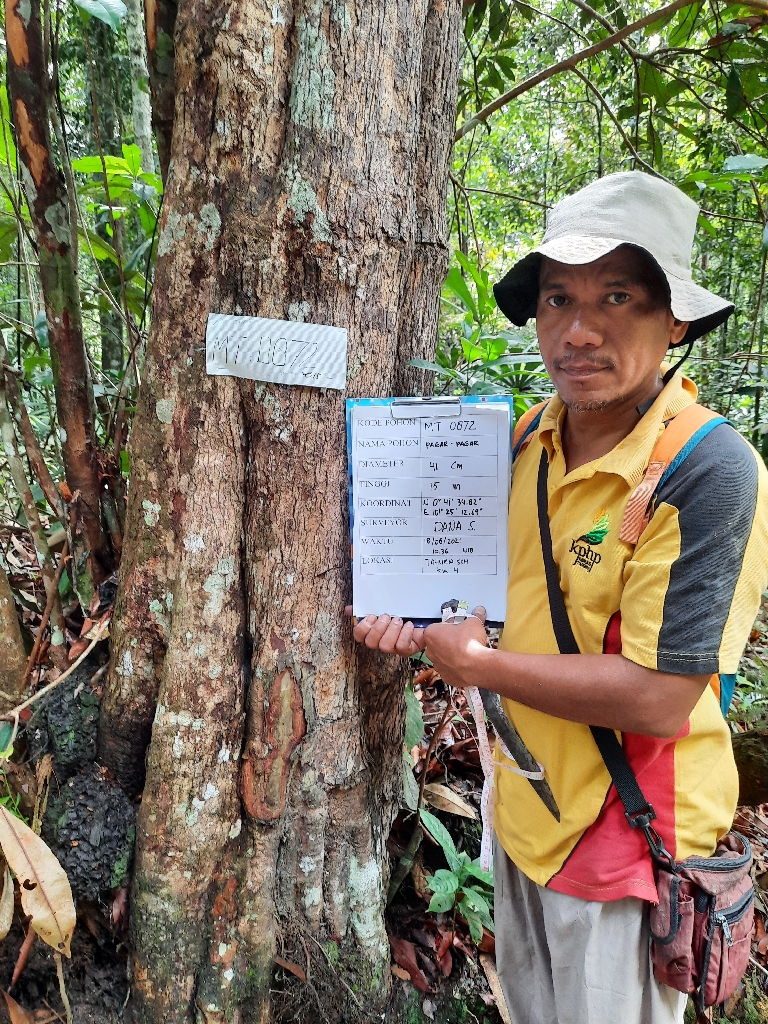 MT 0072
KODE POHON MT 0072
NAMA POHON PAGAR - PAGAR
DIAMETER 41 Cm
TINGGI 15 m
KOORDINAT N 0° 41' 34.82"
E 101° 25' 12.69"
SURVEYOR DANA S.
WAKTU
10.36 WIB
LOKASI
KM 4
kphp